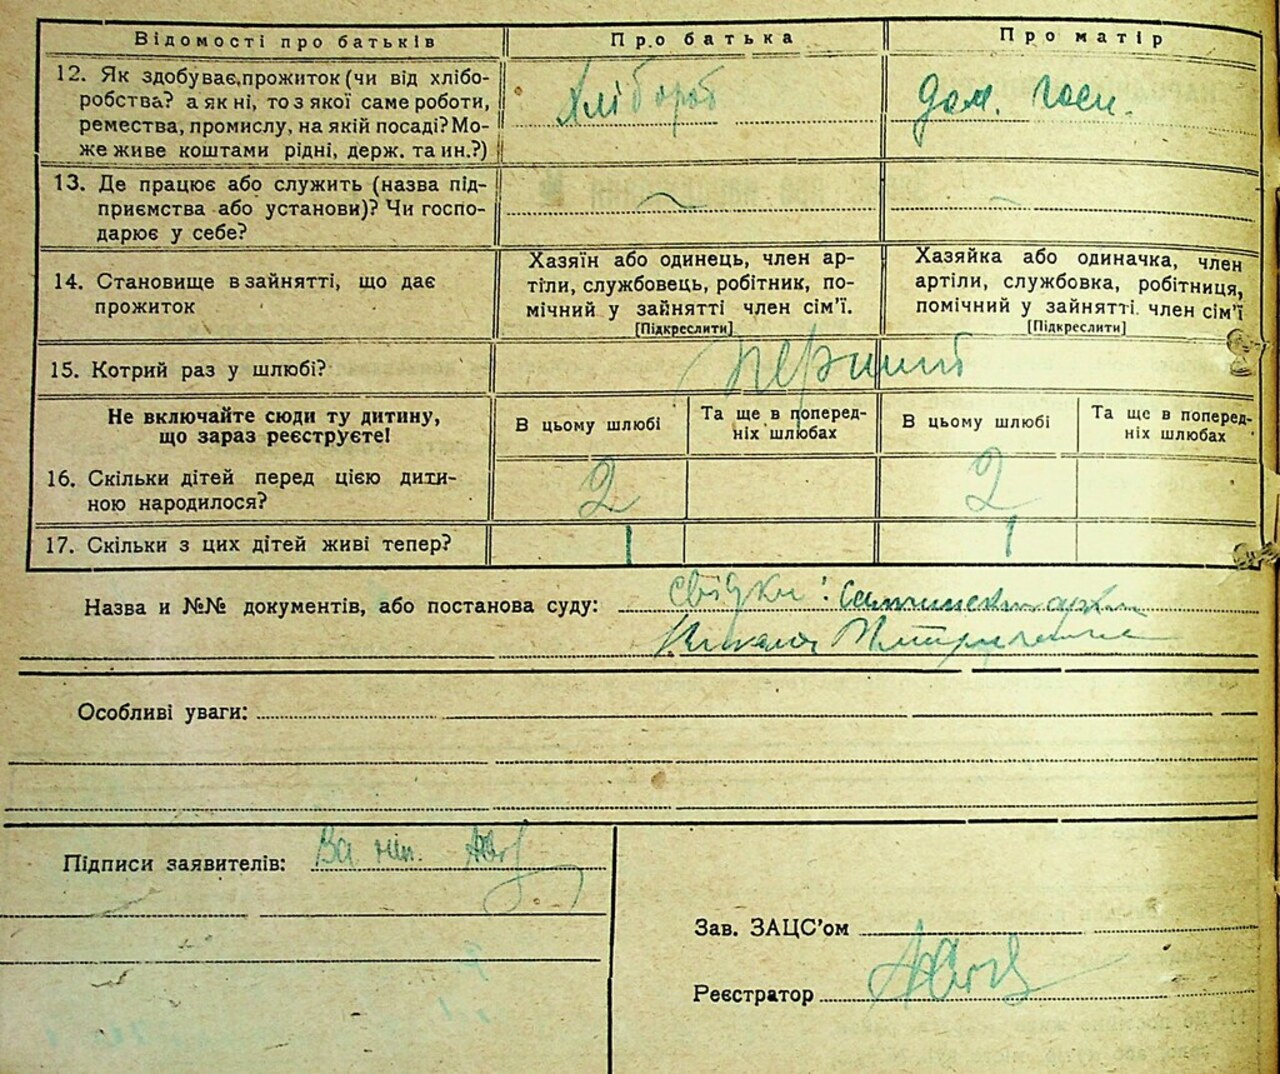 Відомості про батьків Про батька Про матір
12. Як здобуває прожиток (чи від хлібо-
робства? а як ні, то з якої саме роботи,
ремества, промислу, на якій посаді? Мо-
же живе коштами рідні, держ. та ин.?)
Хлібороб дом. госп.
13. Де працює або служить (назва під-
приємства або установи)? Чи госпо-
дарює у себе?
14. Становище в зайнятті, що дає
прожиток
Хазяїн або одинець, член ар-
тіли, службовець, робітник, по-
мічний у зайнятті член сім’ї.
[Підкреслити]
Хазяйка або одиначка, член
артіли, службовка, робітниця,
помічний у зайнятті член сім’ї
[Підкреслити]
15. Котрий раз у шлюбі? перший
Не включайте сюди ту дитину,
що зараз реєструєте!
В цьому шлюбі
Та ще в поперед-
ніх шлюбах
В цьому шлюбі
Та ще в поперед-
ніх шлюбах
16. Скільки дітей перед цією дити-
ною народилося?
2 2
17. Скільки з цих дітей живі тепер? 1 1
Назва и №№ документів, або постанова суду: свідки:
Особливі уваги:
Підписи заявителів: За неп.
Зав. ЗАЦС’ом
Реєстратор